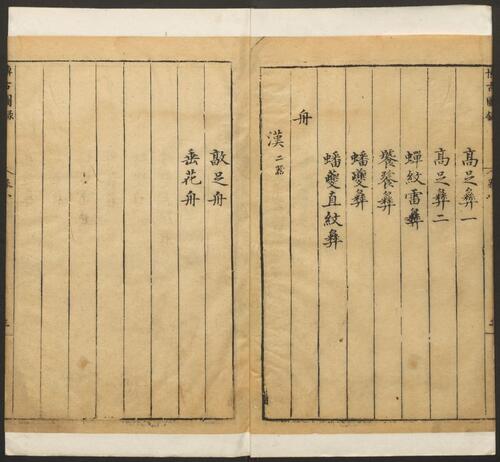 高足彝一
高足彝二
蟬紋雷彝
饕餮彝
蟠夔彝
蟠夔直紋彝
舟
漢二器
敦足舟
垂花舟
博古圖錄